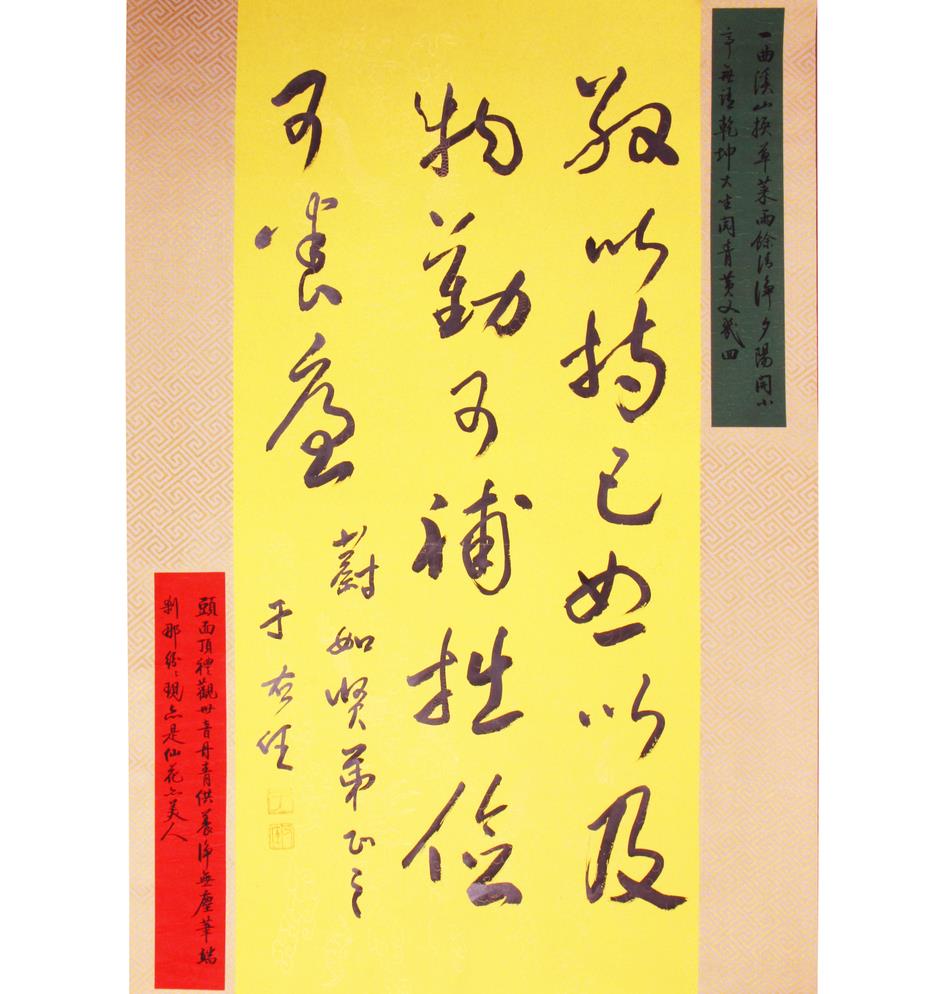 一曲溪山換草萊雨餘清淨夕陽開小
亭無語乾坤大坐閱青黃又幾回
敬以持己恕以及
物勤可補拙儉
可養廉
蔚如賢弟正之
于右任
頭面頂禮觀世音丹青供養淨無塵筆端
剎那紛〻現亦是仙花亦美人